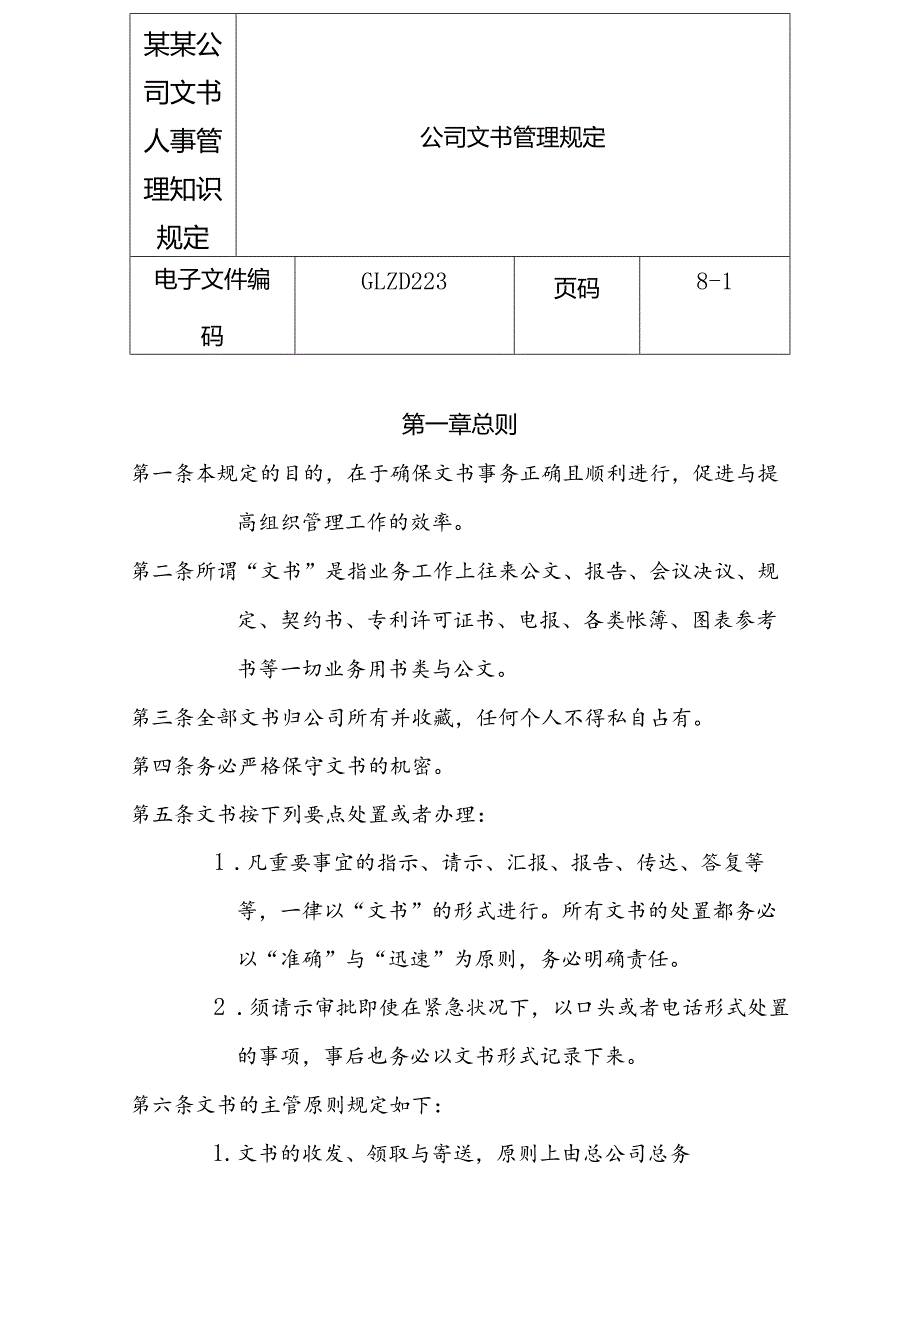 某某公
司文书
人事管
理知识
规定
公司文书管理规定
电子文件编
码
GLZD223
页码
8-1
第一章总则
第一条本规定的目的，在于确保文书事务正确且顺利进行，促进与提
高组织管理工作的效率。
第二条所谓“文书”是指业务工作上往来公文、报告、会议决议、规
定、契约书、专利许可证书、电报、各类帐簿、图表参考
书等一切业务用书类与公文。
第三条全部文书归公司所有并收藏，任何个人不得私自占有。
第四条务必严格保守文书的机密。
第五条文书按下列要点处置或者办理：
1．凡重要事宜的指示、请示、汇报、报告、传达、答复等
等，一律以“文书”的形式进行。所有文书的处置都务必
以“准确”与“迅速”为原则，务必明确责任。
2．须请示审批即使在紧急状况下，以口头或者电话形式处置
的事项，事后也务必以文书形式记录下来。
第六条文书的主管原则规定如下：
1.文书的收发、领取与寄送，原则上由总公司总务